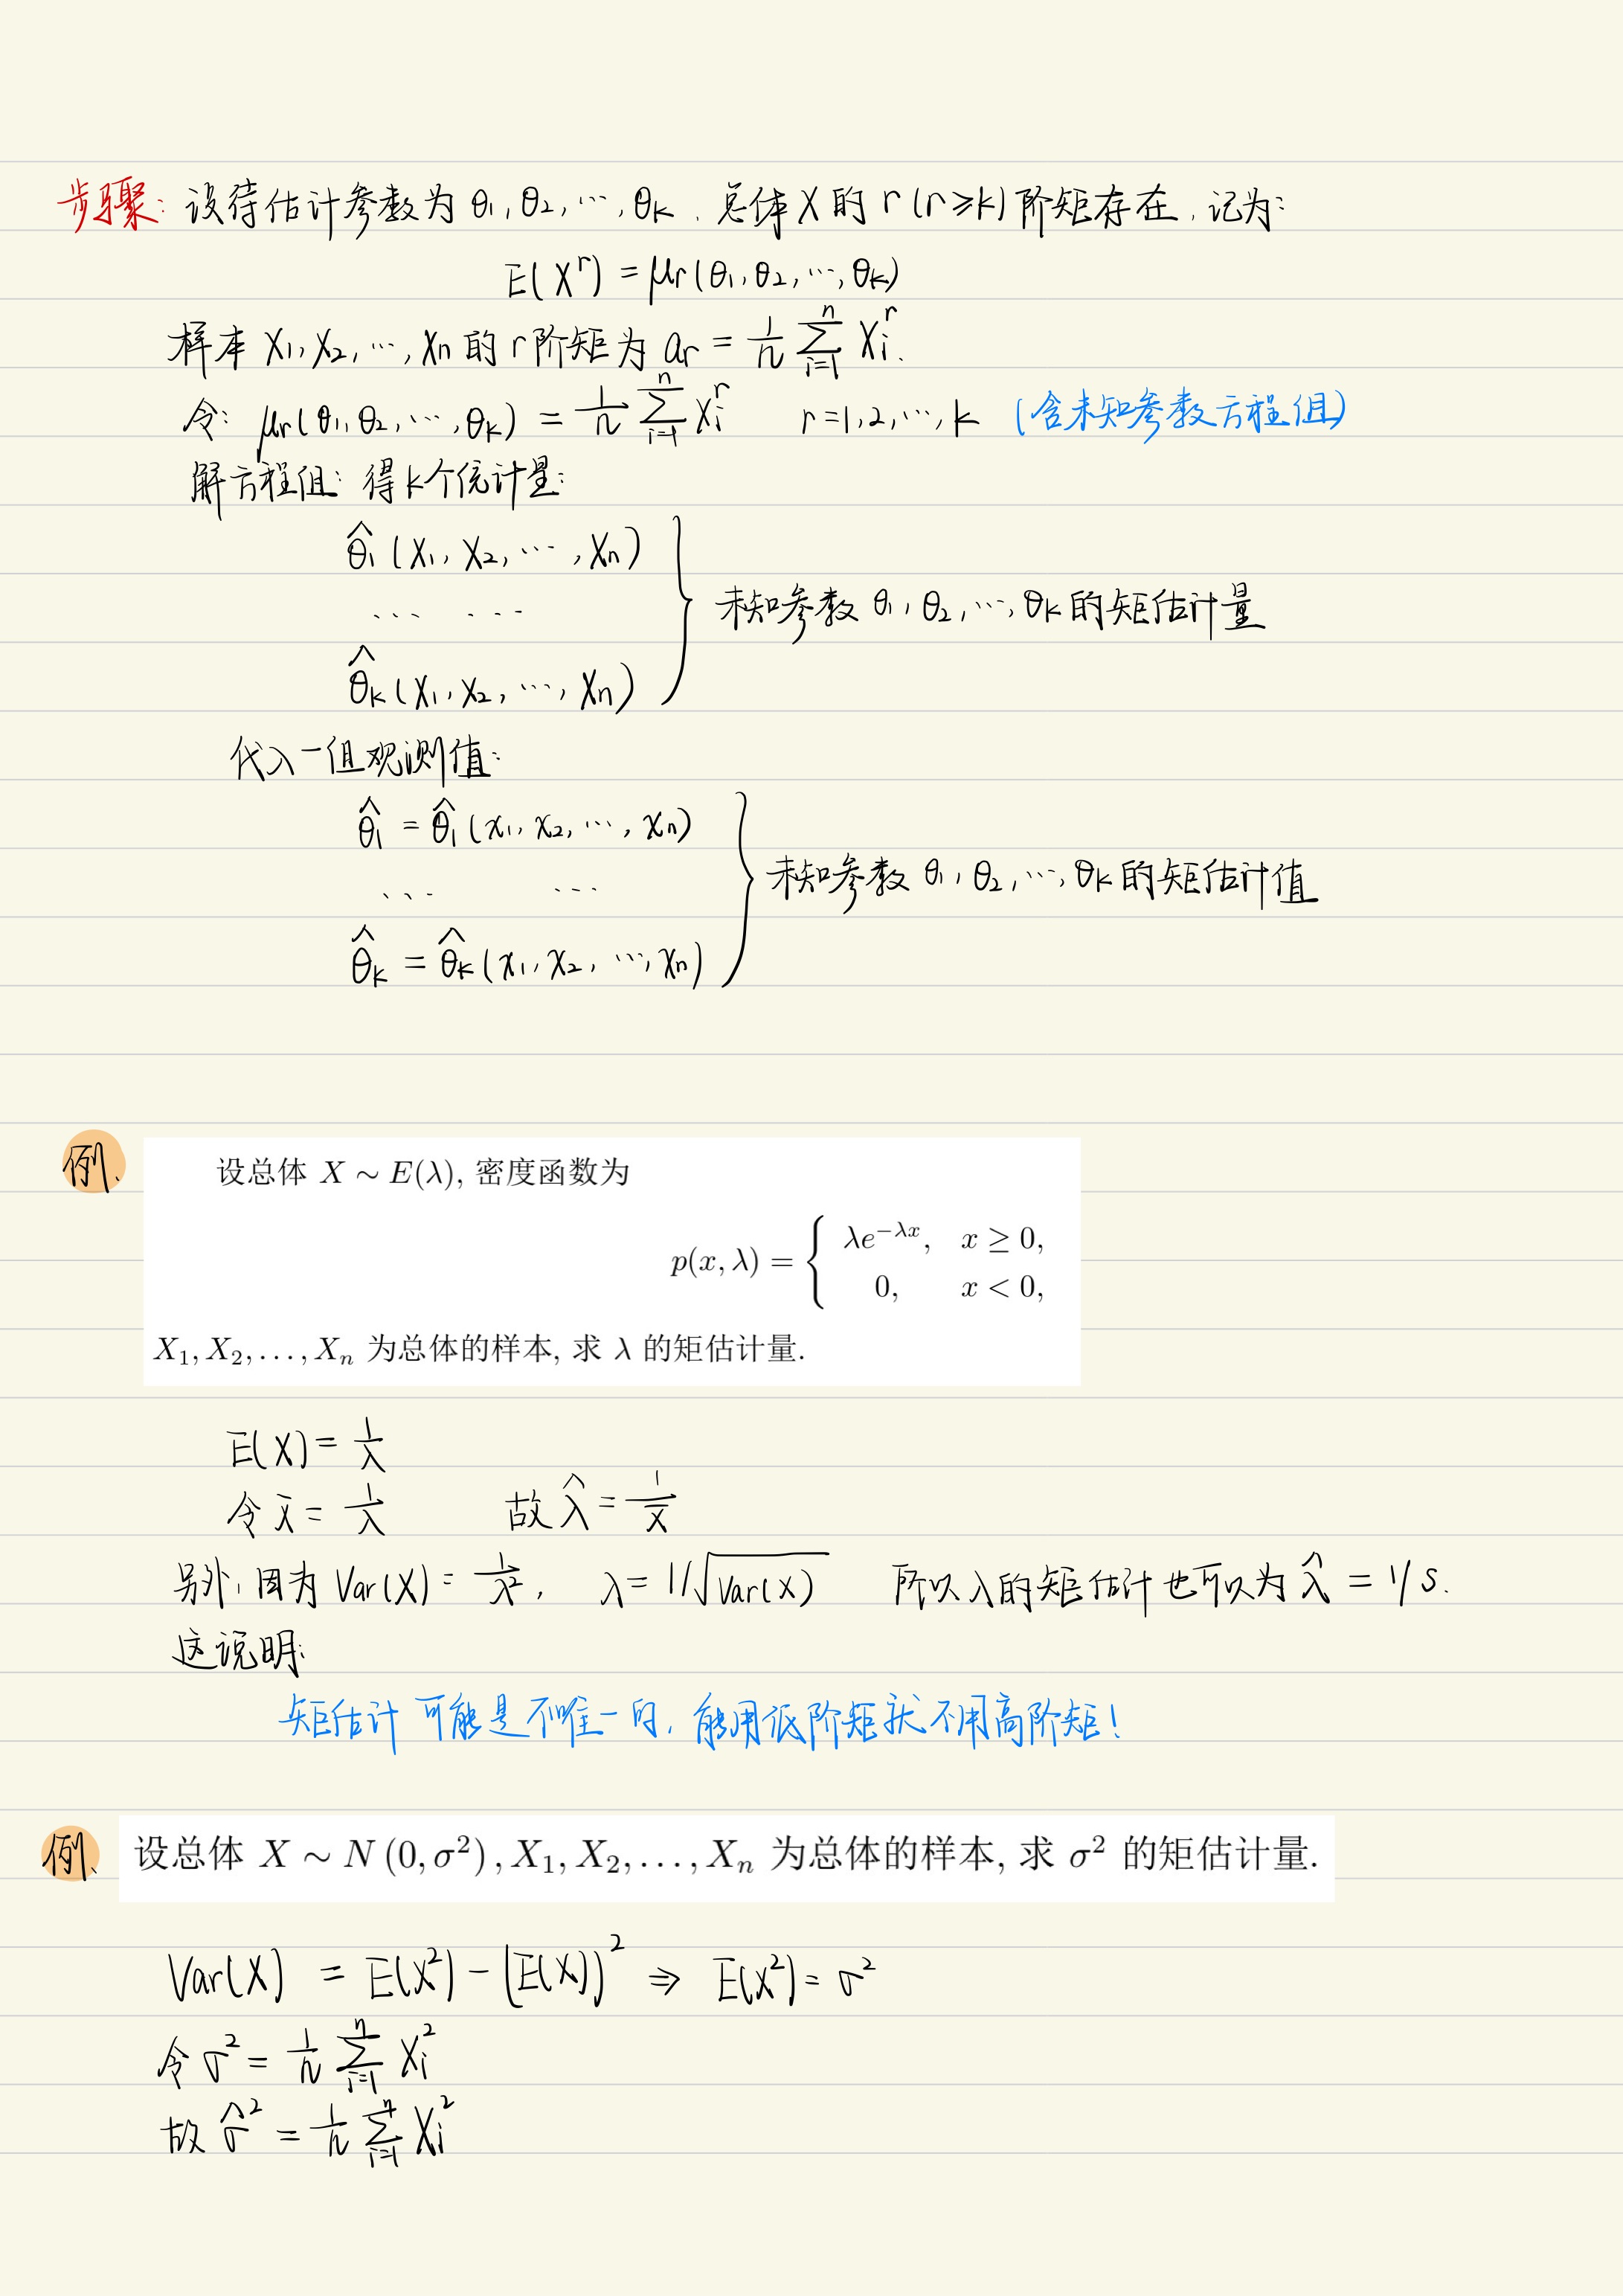 步骤: 设待估计参数为 θ₁, θ₂, ⋯, θₖ, 总体 X 的 r (r≥k) 阶矩存在, 记为:
E(Xʳ) = μᵣ(θ₁, θ₂, ⋯, θₖ)
样本 X₁, X₂, ⋯, Xₙ 的 r 阶矩为 aᵣ = 1/n ∑ᵢ₌₁ⁿ Xᵢʳ.
令: μᵣ(θ₁, θ₂, ⋯, θₖ) = 1/n ∑ᵢ₌₁ⁿ Xᵢʳ r=1, 2, ⋯, k (含未知参数方程组)
解方程组: 得 k 个统计量:
θ̂₁(X₁, X₂, ⋯, Xₙ)
⋯ ⋯
} 未知参数 θ₁, θ₂, ⋯, θₖ 的矩估计量
θ̂ₖ(X₁, X₂, ⋯, Xₙ)
代入一组观测值:
θ̂₁ = θ̂₁(x₁, x₂, ⋯, xₙ)
⋯ ⋯
} 未知参数 θ₁, θ₂, ⋯, θₖ 的矩估计值
θ̂ₖ = θ̂ₖ(x₁, x₂, ⋯, xₙ)
例、 设总体 X ∼ E(λ), 密度函数为
p(x, λ) = { λe^{−λx}, x ≥ 0,
0, x < 0,
X₁, X₂, . . . , Xₙ 为总体的样本, 求 λ 的矩估计量.
E(X) = 1/λ
令 x̄ = 1/λ 故 λ̂ = 1/x̄
另外, 因为 Var(X) = 1/λ², λ = 1/√Var(X) 所以 λ 的矩估计也可以为 λ̂ = 1/s.
这说明:
矩估计可能是不唯一的, 能用低阶矩就不用高阶矩!
例、 设总体 X ∼ N (0, σ²) , X₁, X₂, . . . , Xₙ 为总体的样本, 求 σ² 的矩估计量.
Var(X) = E(X²) − (E(X))² ⇒ E(X²) = σ²
令 σ² = 1/n ∑ᵢ₌₁ⁿ Xᵢ²
故 σ̂² = 1/n ∑ᵢ₌₁ⁿ Xᵢ²